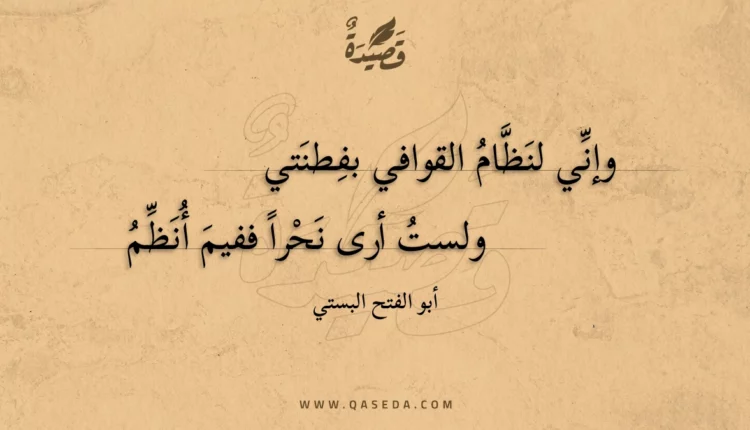 قَصِيدَةٌ
وإنِّي لنَظَّامُ القوافي بفِطنَتي
ولستُ أرى نَحْراً ففيمَ أُنَظِّمُ
أبو الفتح البستي
WWW.QASEDA.COM